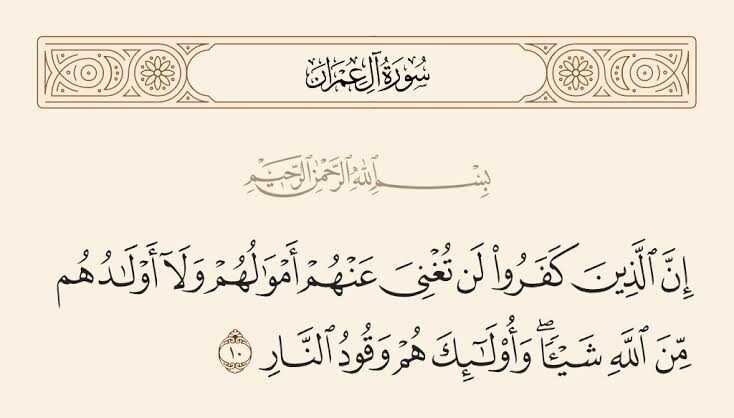 سُورَةُ آلِ عِمۡرَانَ
بِسۡمِ ٱللَّهِ ٱلرَّحۡمَٰنِ ٱلرَّحِيمِ
إِنَّ ٱلَّذِينَ كَفَرُواْ لَن تُغۡنِيَ عَنۡهُمۡ أَمۡوَٰلُهُمۡ وَلَآ أَوۡلَٰدُهُم
مِّنَ ٱللَّهِ شَيۡـٔٗاۖ وَأُوْلَٰٓئِكَ هُمۡ وَقُودُ ٱلنَّارِ ١٠